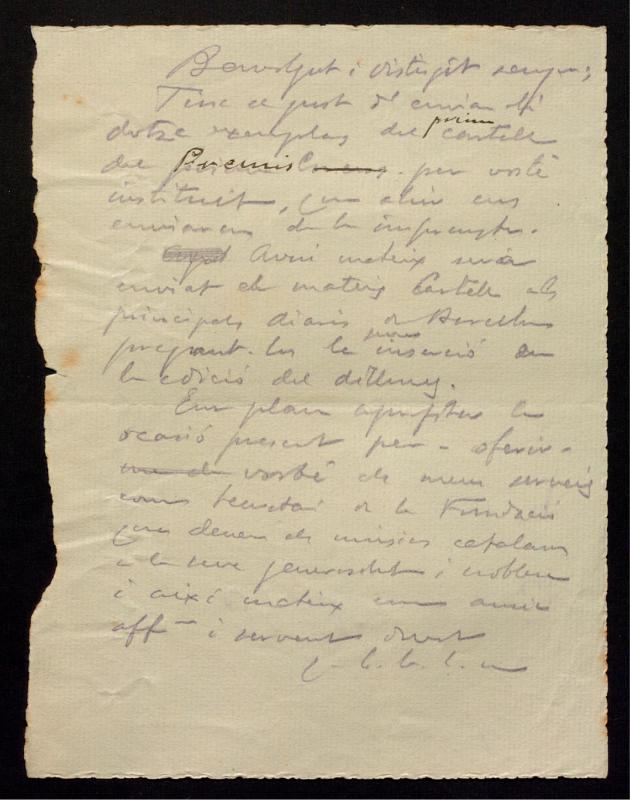 Benvolgut i distingit senyor;
Tinc el gust d'enviar-li
dotze exemplars del primer cartell
del Premis per vosté
instituit, que ahir ens
enviaren de la impremta.
Avui mateix será
enviat el mateix Cartell als
principals diaris de Barcelona
pregant-los la inserció en
la edició del dilluns.
Em plau aprofitar la
ocasió present per a oferir-
vosté els meus serveis
com a Secretari de la Fundació
que deuen els músics catalans
a la seva generositat i noblesa
i així mateix com amic
aff i servent devot
q. l. b. l. m